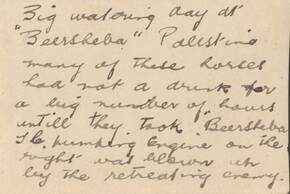 Big watering day at
"Beersheba" Palestine
many of these horses
had not a drink for
a big number of hours
untill they took "Beersheba
The pumping engine on the
right was blown up
by the retreating enemy.